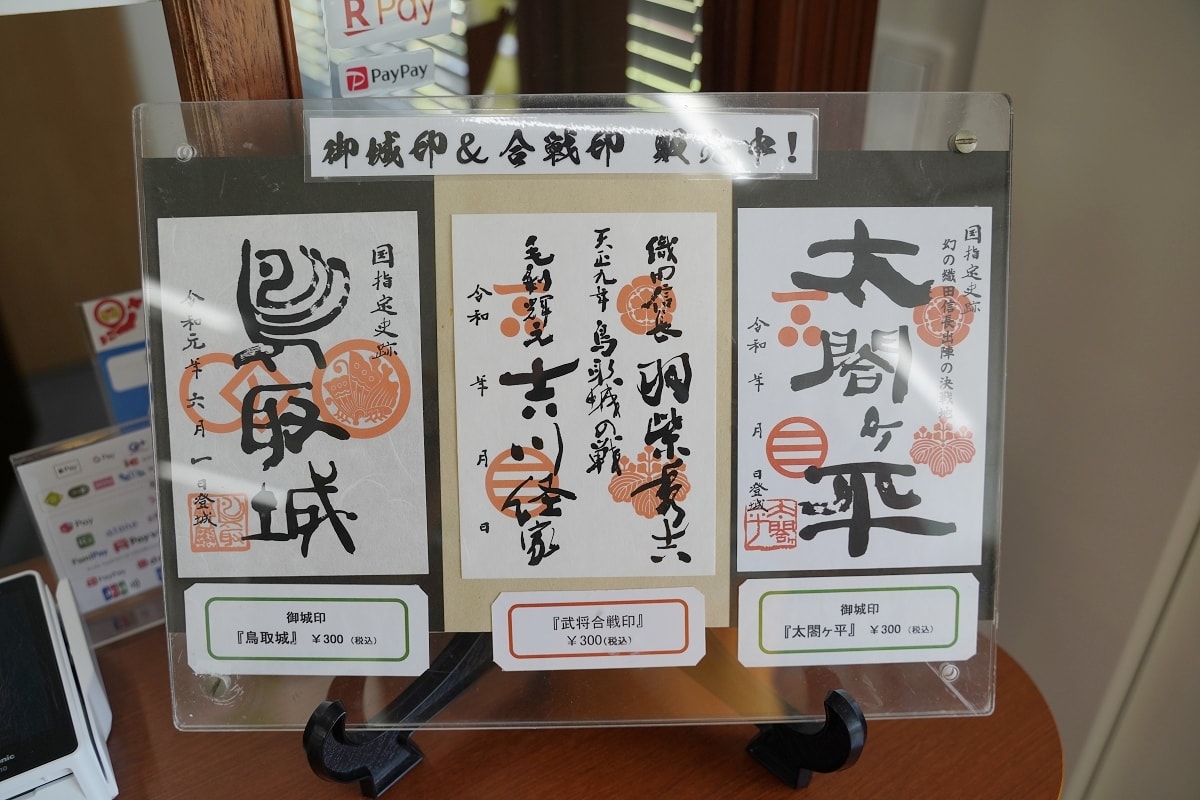 R Pay
PayPay
御城印&合戦印 販売中!
国指定史跡
鳥取城
令和元年六月一日登城
織田信長 羽柴秀吉
天正九年 鳥取城の戦
毛利輝元 吉川経家
令和 年 月 日
国指定史跡
幻の織田信長出陣の決戦地
太閤ヶ平
令和 年 月 日登城
御城印
『鳥取城』 ¥300(税込)
『武将合戦印』
¥300(税込)
御城印
『太閤ヶ平』 ¥300(税込)
Pay
FamiPay